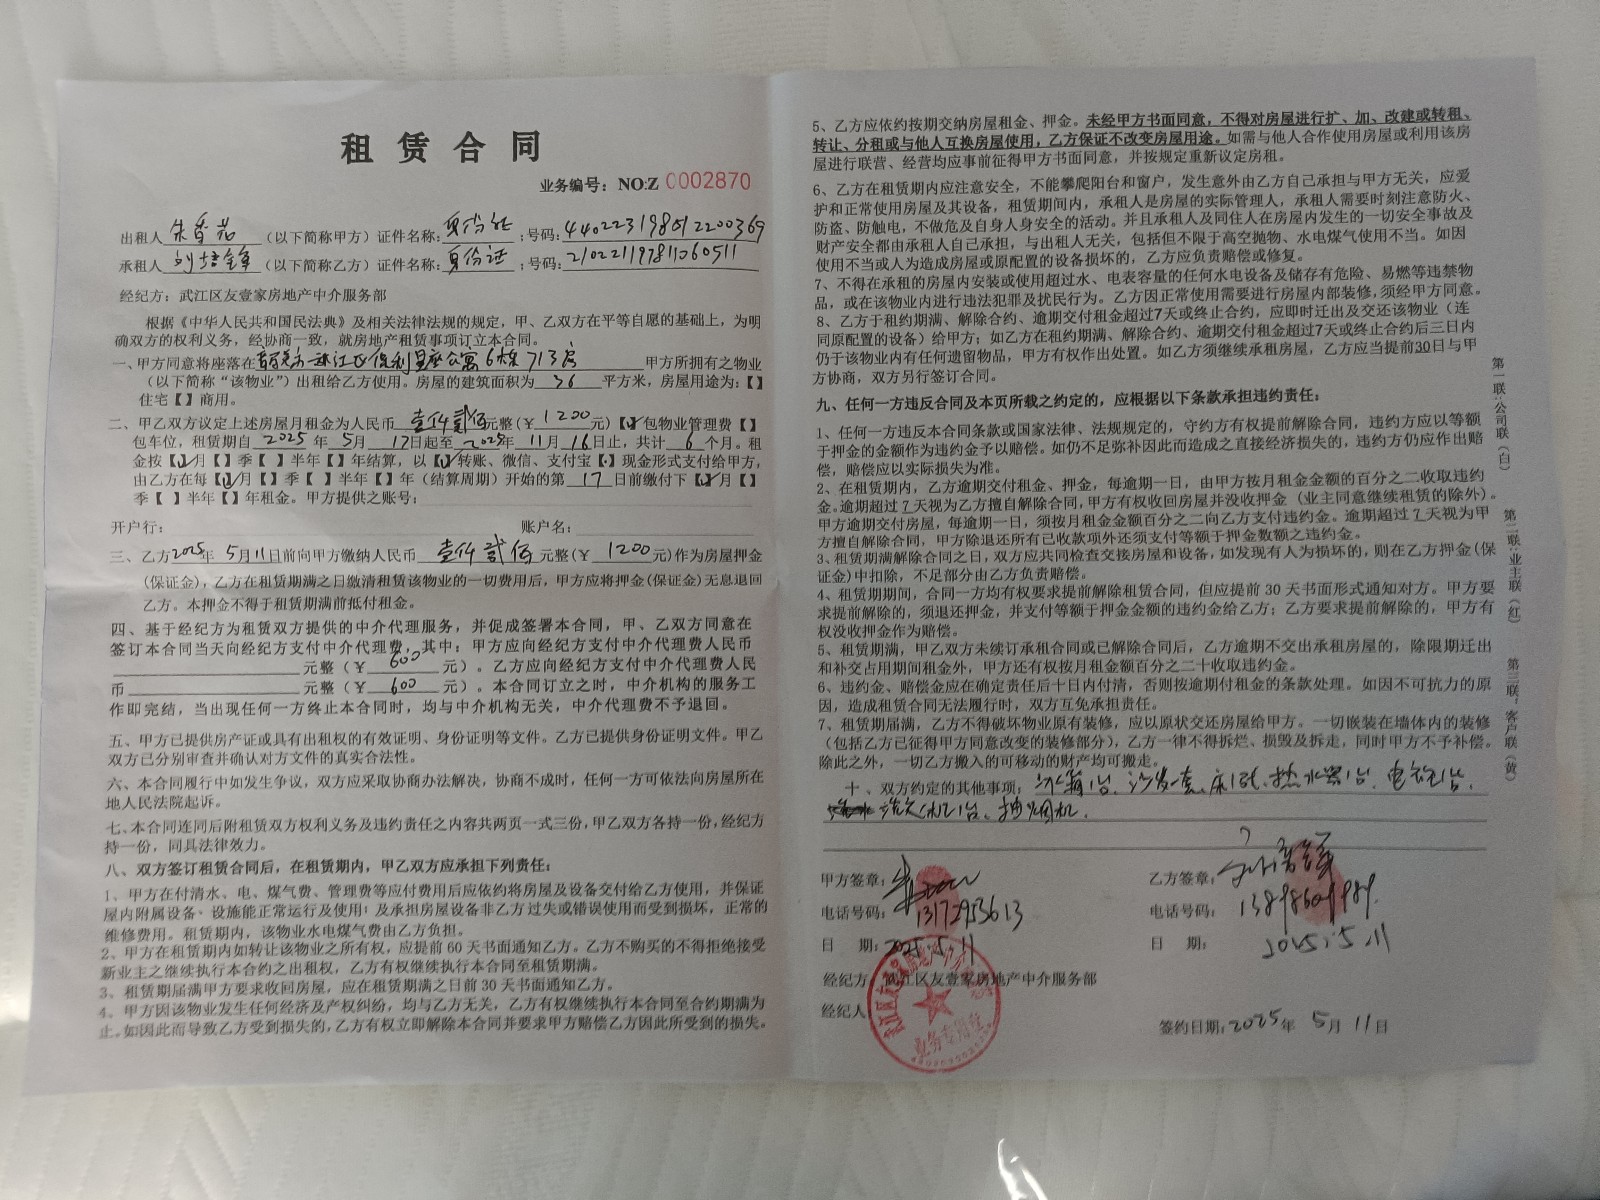 租赁合同
业务编号：NO:Z 0002870
出租人 朱香花 （以下简称甲方）证件名称：身份证 ；号码：440223198512200369
承租人 刘培锋 （以下简称乙方）证件名称：身份证 ；号码：210221197811060511
经纪方：武江区友壹家房地产中介服务部
根据《中华人民共和国民法典》及相关法律法规的规定，甲、乙双方在平等自愿的基础上，为明
确双方的权利义务，经协商一致，就房地产租赁事项订立本合同。
一、甲方同意将座落在韶关市武江区保利星座公寓6栋713房 甲方所拥有之物业
（以下简称“该物业”）出租给乙方使用。房屋的建筑面积为 36 平方米，房屋用途为：【】
住宅【】商用。
二、甲乙双方议定上述房屋月租金为人民币 壹仟贰佰元整（￥1200元）【✓】包物业管理费【】
包车位，租赁期自 2025 年 5月 17日起至 2025年 11月 16日止，共计 6 个月。租
金按【✓】月【】季【】半年【】年结算，以【✓】转账、微信、支付宝【】现金形式支付给甲方，
由乙方在每【✓】月【】季【】半年【】年（结算周期）开始的第 17 日前缴付下【✓】月【】
季【】半年【】年租金。甲方提供之账号：
开户行： 账户名：
三、乙方2025年 5月11日前向甲方缴纳人民币 壹仟贰佰 元整（￥ 1200 元）作为房屋押金
（保证金），乙方在租赁期满之日缴清租赁该物业的一切费用后，甲方应将押金（保证金）无息退回
乙方。本押金不得于租赁期满前抵付租金。
四、基于经纪方为租赁双方提供的中介代理服务，并促成签署本合同，甲、乙双方同意在
签订本合同当天向经纪方支付中介代理费，其中：甲方应向经纪方支付中介代理费人民币
元整（￥ 600 元）。乙方应向经纪方支付中介代理费人民
币 元整（￥ 600 元）。本合同订立之时，中介机构的服务工
作即完结，当出现任何一方终止本合同时，均与中介机构无关，中介代理费不予退回。
五、甲方已提供房产证或具有出租权的有效证明、身份证明等文件。乙方已提供身份证明文件。甲乙
双方已分别审查并确认对方文件的真实合法性。
六、本合同履行中如发生争议，双方应采取协商办法解决，协商不成时，任何一方可依法向房屋所在
地人民法院起诉。
七、本合同连同后附租赁双方权利义务及违约责任之内容共两页一式三份，甲乙双方各持一份，经纪方
持一份，同具法律效力。
八、双方签订租赁合同后，在租赁期内，甲乙双方应承担下列责任：
1、甲方在付清水、电、煤气费、管理费等应付费用后应依约将房屋及设备交付给乙方使用，并保证
屋内附属设备、设施能正常运行及使用！及承担房屋设备非乙方过失或错误使用而受到损坏，正常的
维修费用。租赁期内，该物业水电煤气费由乙方负担。
2、甲方在租赁期内如转让该物业之所有权，应提前60天书面通知乙方。乙方不购买的不得拒绝接受
新业主之继续执行本合约之出租权，乙方有权继续执行本合同至租赁期满。
3、租赁期届满甲方要求收回房屋，应在租赁期满之日前30天书面通知乙方。
4、甲方因该物业发生任何经济及产权纠纷，均与乙方无关，乙方有权继续执行本合同至合约期满为
止。如因此而导致乙方受到损失的，乙方有权立即解除本合同并要求甲方赔偿乙方因此所受到的损失。
5、乙方应依约按期交纳房屋租金、押金。未经甲方书面同意，不得对房屋进行扩、加、改建或转租、
转让、分租或与他人互换房屋使用，乙方保证不改变房屋用途。如需与他人合作使用房屋或利用该房
屋进行联营、经营均应事前征得甲方书面同意，并按规定重新议定房租。
6、乙方在租赁期内应注意安全，不能攀爬阳台和窗户，发生意外由乙方自己承担与甲方无关，应爱
护和正常使用房屋及其设备，租赁期间内，承租人是房屋的实际管理人，承租人需要时刻注意防火、
防盗、防触电，不做危及自身人身安全的活动。并且承租人及同住人在房屋内发生的一切安全事故及
财产安全都由承租人自己承担，与出租人无关，包括但不限于高空抛物、水电煤气使用不当。如因
使用不当或人为造成房屋或原配置的设备损坏的，乙方应负责赔偿或修复。
7、不得在承租的房屋内安装或使用超过水、电表容量的任何水电设备及储存有危险、易燃等违禁物
品，或在该物业内进行违法犯罪及扰民行为。乙方因正常使用需要进行房屋内部装修，须经甲方同意。
8、乙方于租约期满、解除合约、逾期交付租金超过7天或终止合约，应即时迁出及交还该物业（连
同原配置的设备）给甲方；如乙方在租约期满、解除合约、逾期交付租金超过7天或终止合约后三日内
仍于该物业内有任何遗留物品，甲方有权作出处置。如乙方须继续承租房屋，乙方应当提前30日与甲
方协商，双方另行签订合同。
九、任何一方违反合同及本页所载之约定的，应根据以下条款承担违约责任：
1、任何一方违反本合同条款或国家法律、法规规定的，守约方有权提前解除合同，违约方应以等额
于押金的金额作为违约金予以赔偿。如仍不足弥补因此而造成之直接经济损失的，违约方仍应作出赔
偿，赔偿应以实际损失为准。
2、在租赁期内，乙方逾期交付租金、押金，每逾期一日，由甲方按月租金金额的百分之二收取违约
金。逾期超过7天视为乙方擅自解除合同，甲方有权收回房屋并没收押金（业主同意继续租赁的除外）。
甲方逾期交付房屋，每逾期一日，须按月租金金额百分之二向乙方支付违约金。逾期超过7天视为甲
方擅自解除合同，甲方除退还所有已收款项外还须支付等额于押金数额之违约金。
3、租赁期满解除合同之日，双方应共同检查交接房屋和设备，如发现有人为损坏的，则在乙方押金（保
证金）中扣除，不足部分由乙方负责赔偿。
4、租赁期期间，合同一方均有权要求提前解除租赁合同，但应提前30天书面形式通知对方。甲方要
求提前解除的，须退还押金，并支付等额于押金金额的违约金给乙方；乙方要求提前解除的，甲方有
权没收押金作为赔偿。
5、租赁期满，甲乙双方未续订承租合同或已解除合同后，乙方逾期不交出承租房屋的，除限期迁出
和补交占用期间租金外，甲方还有权按月租金额百分之二十收取违约金。
6、违约金、赔偿金应在确定责任后十日内付清，否则按逾期付租金的条款处理。如因不可抗力的原
因，造成租赁合同无法履行时，双方互免承担责任。
7、租赁期届满，乙方不得破坏物业原有装修，应以原状交还房屋给甲方。一切嵌装在墙体内的装修
（包括乙方已征得甲方同意改变的装修部分），乙方一律不得拆烂、损毁及拆走，同时甲方不予补偿。
除此之外，一切乙方搬入的可移动的财产均可搬走。
十、双方约定的其他事项：冰箱1台、沙发一套、床1张、热水器1台、电视1台、
洗衣机1台、抽烟机。
甲方签章：
电话号码：13172953613
日 期：2025.5.11
经纪方：武江区友壹家房地产中介服务部
经纪人
乙方签章：刘培锋
电话号码：13898609989
日 期：2025.5.11
签约日期：2025年 5月 11日
业务专用章
第一联：公司联（白）
第二联：业主联（红）
第三联：客户联（黄）